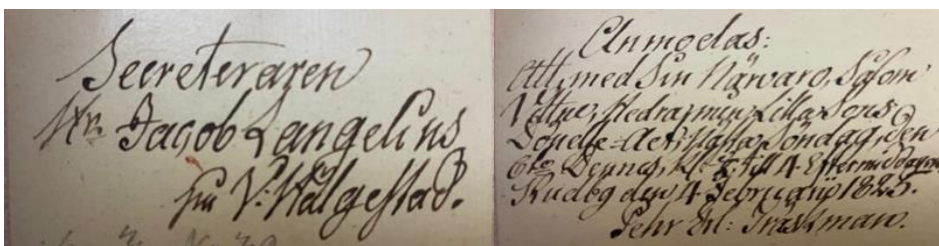 Secreteraren
Hr Jacob Langelius
på V: Walgestad.
Anmodas:
Att, med Sin Närvaro, Såsom
Vitne, hedra min Lilla Sons
nästa Söndag, den
6te Dennes, Kl: till 4 Eftermiddagen
den 4 Februarii 1825.
Pehr Er: Träskman.